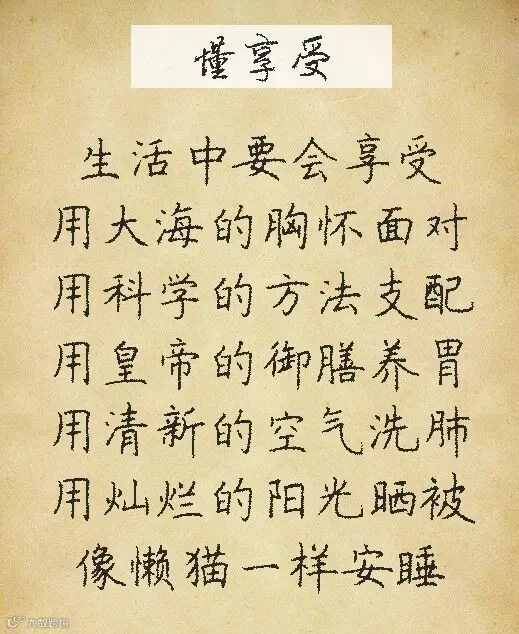 懂享受
生活中要会享受
用大海的胸怀面对
用科学的方法支配
用皇帝的御膳养胃
用清新的空气洗肺
用灿烂的阳光晒被
像懒猫一样安睡